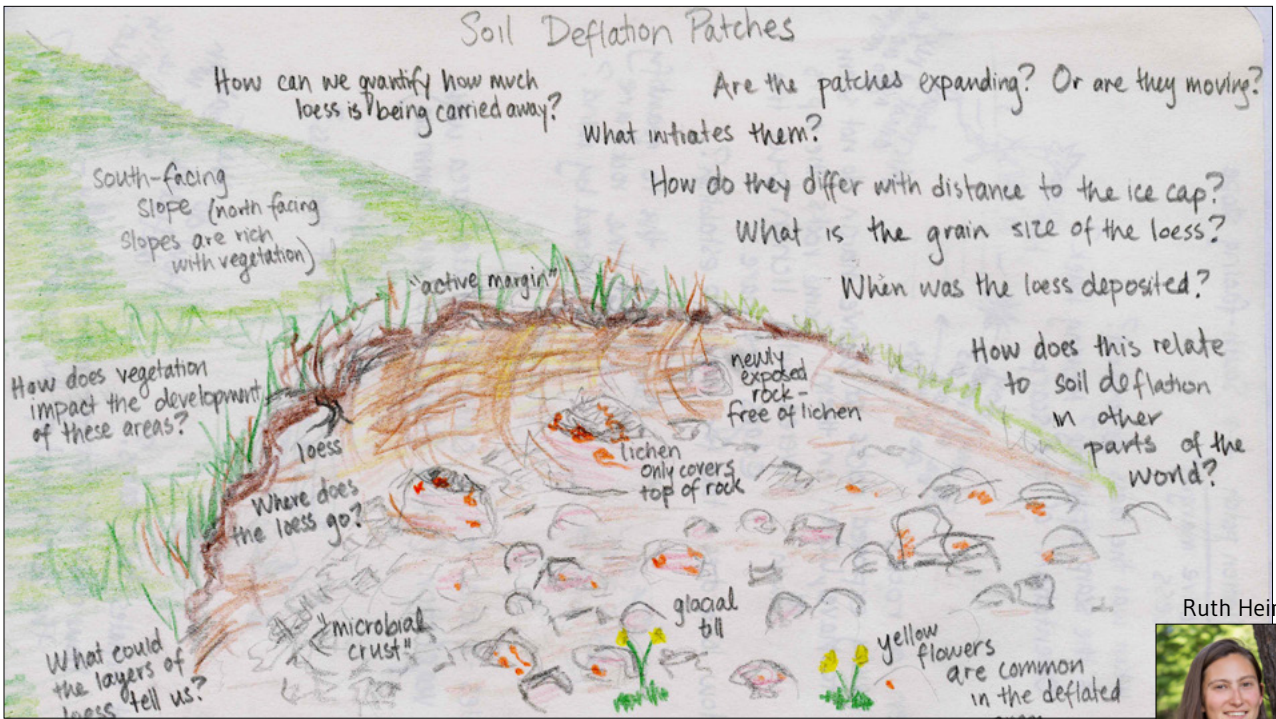 Soil Deflation Patches
How can we quantify how much
loess is being carried away?
Are the patches expanding? Or are they moving?
What initiates them?
How do they differ with distance to the ice cap?
What is the grain size of the loess?
When was the loess deposited?
How does this relate
to soil deflation
in other
parts of the
world?
South-facing
slope (north facing
slopes are rich
with vegetation)
"active margin"
How does vegetation
impact the development
of these areas?
loess
newly
exposed
rock -
free of lichen
lichen
only covers
top of rock
Where does
the loess go?
"microbial
crust"
glacial
till
yellow
flowers
are common
in the deflated
What could
the layers of
loess tell us?
Ruth Hei